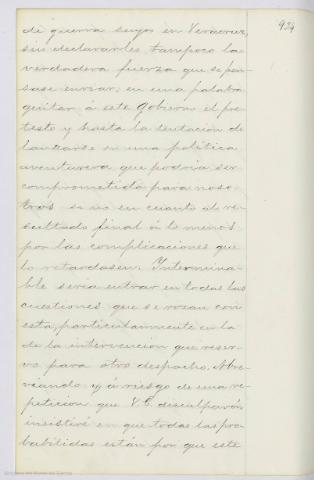 939
de guerra suyos en Veracruz,
sin declararles tampoco la
verdadera fuerza que se pen-
sase enviar; en una palabra
quitar á este Gobierno el pre-
testo y hasta la tentacion de
lanzarse en una política
aventurera que podría ser
comprometida para noso-
tros si no en cuanto al re-
sultado final á lo menos
por las complicaciones que
lo retardasen. Intermina-
ble seria entrar en todas las
cuestiones que se rozan con
esta, particularmente en la
de la intervencion que reser-
vo para otro despacho. Abre-
viando y á riesgo de una re-
peticion que V. E. disculpará,
insistiré en que todas las pro-
babilidades están por que este